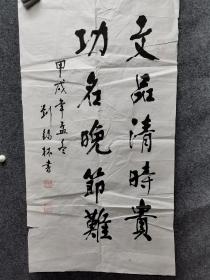 文品清時貴
功名晚節難
甲戌年孟冬
劉錫林書